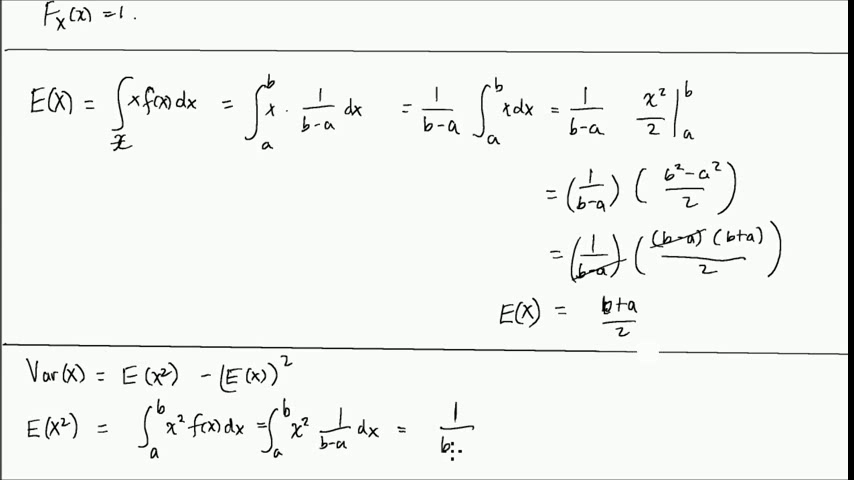 F_X(x) = 1.
E(X) = ∫_𝒳 x f(x) dx = ∫_a^b x · 1/(b-a) dx = 1/(b-a) ∫_a^b x dx = 1/(b-a) x²/2 |_a^b
= (1/(b-a)) ((b²-a²)/2)
= (1/(b-a)) ((b-a)(b+a)/2)
E(X) = (b+a)/2
Var(X) = E(X²) - (E(X))²
E(X²) = ∫_a^b x² f(x) dx = ∫_a^b x² 1/(b-a) dx = 1/b